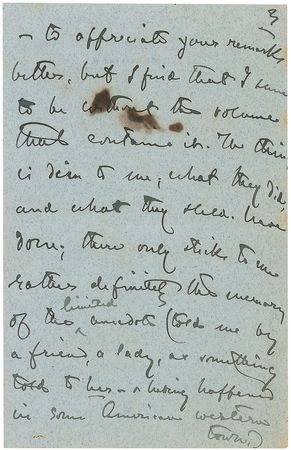 3
— to appreciate your remarks
better. but I find that I seem
to be without the volume
that contains it. The thing
is dim to me; what they did,
and what they shld. have
done; there only sticks to me
rather definitely the memory
limited
of the anecdote (told me by
a friend, a lady, as something
told to her — as having happened
in some American western
town.)